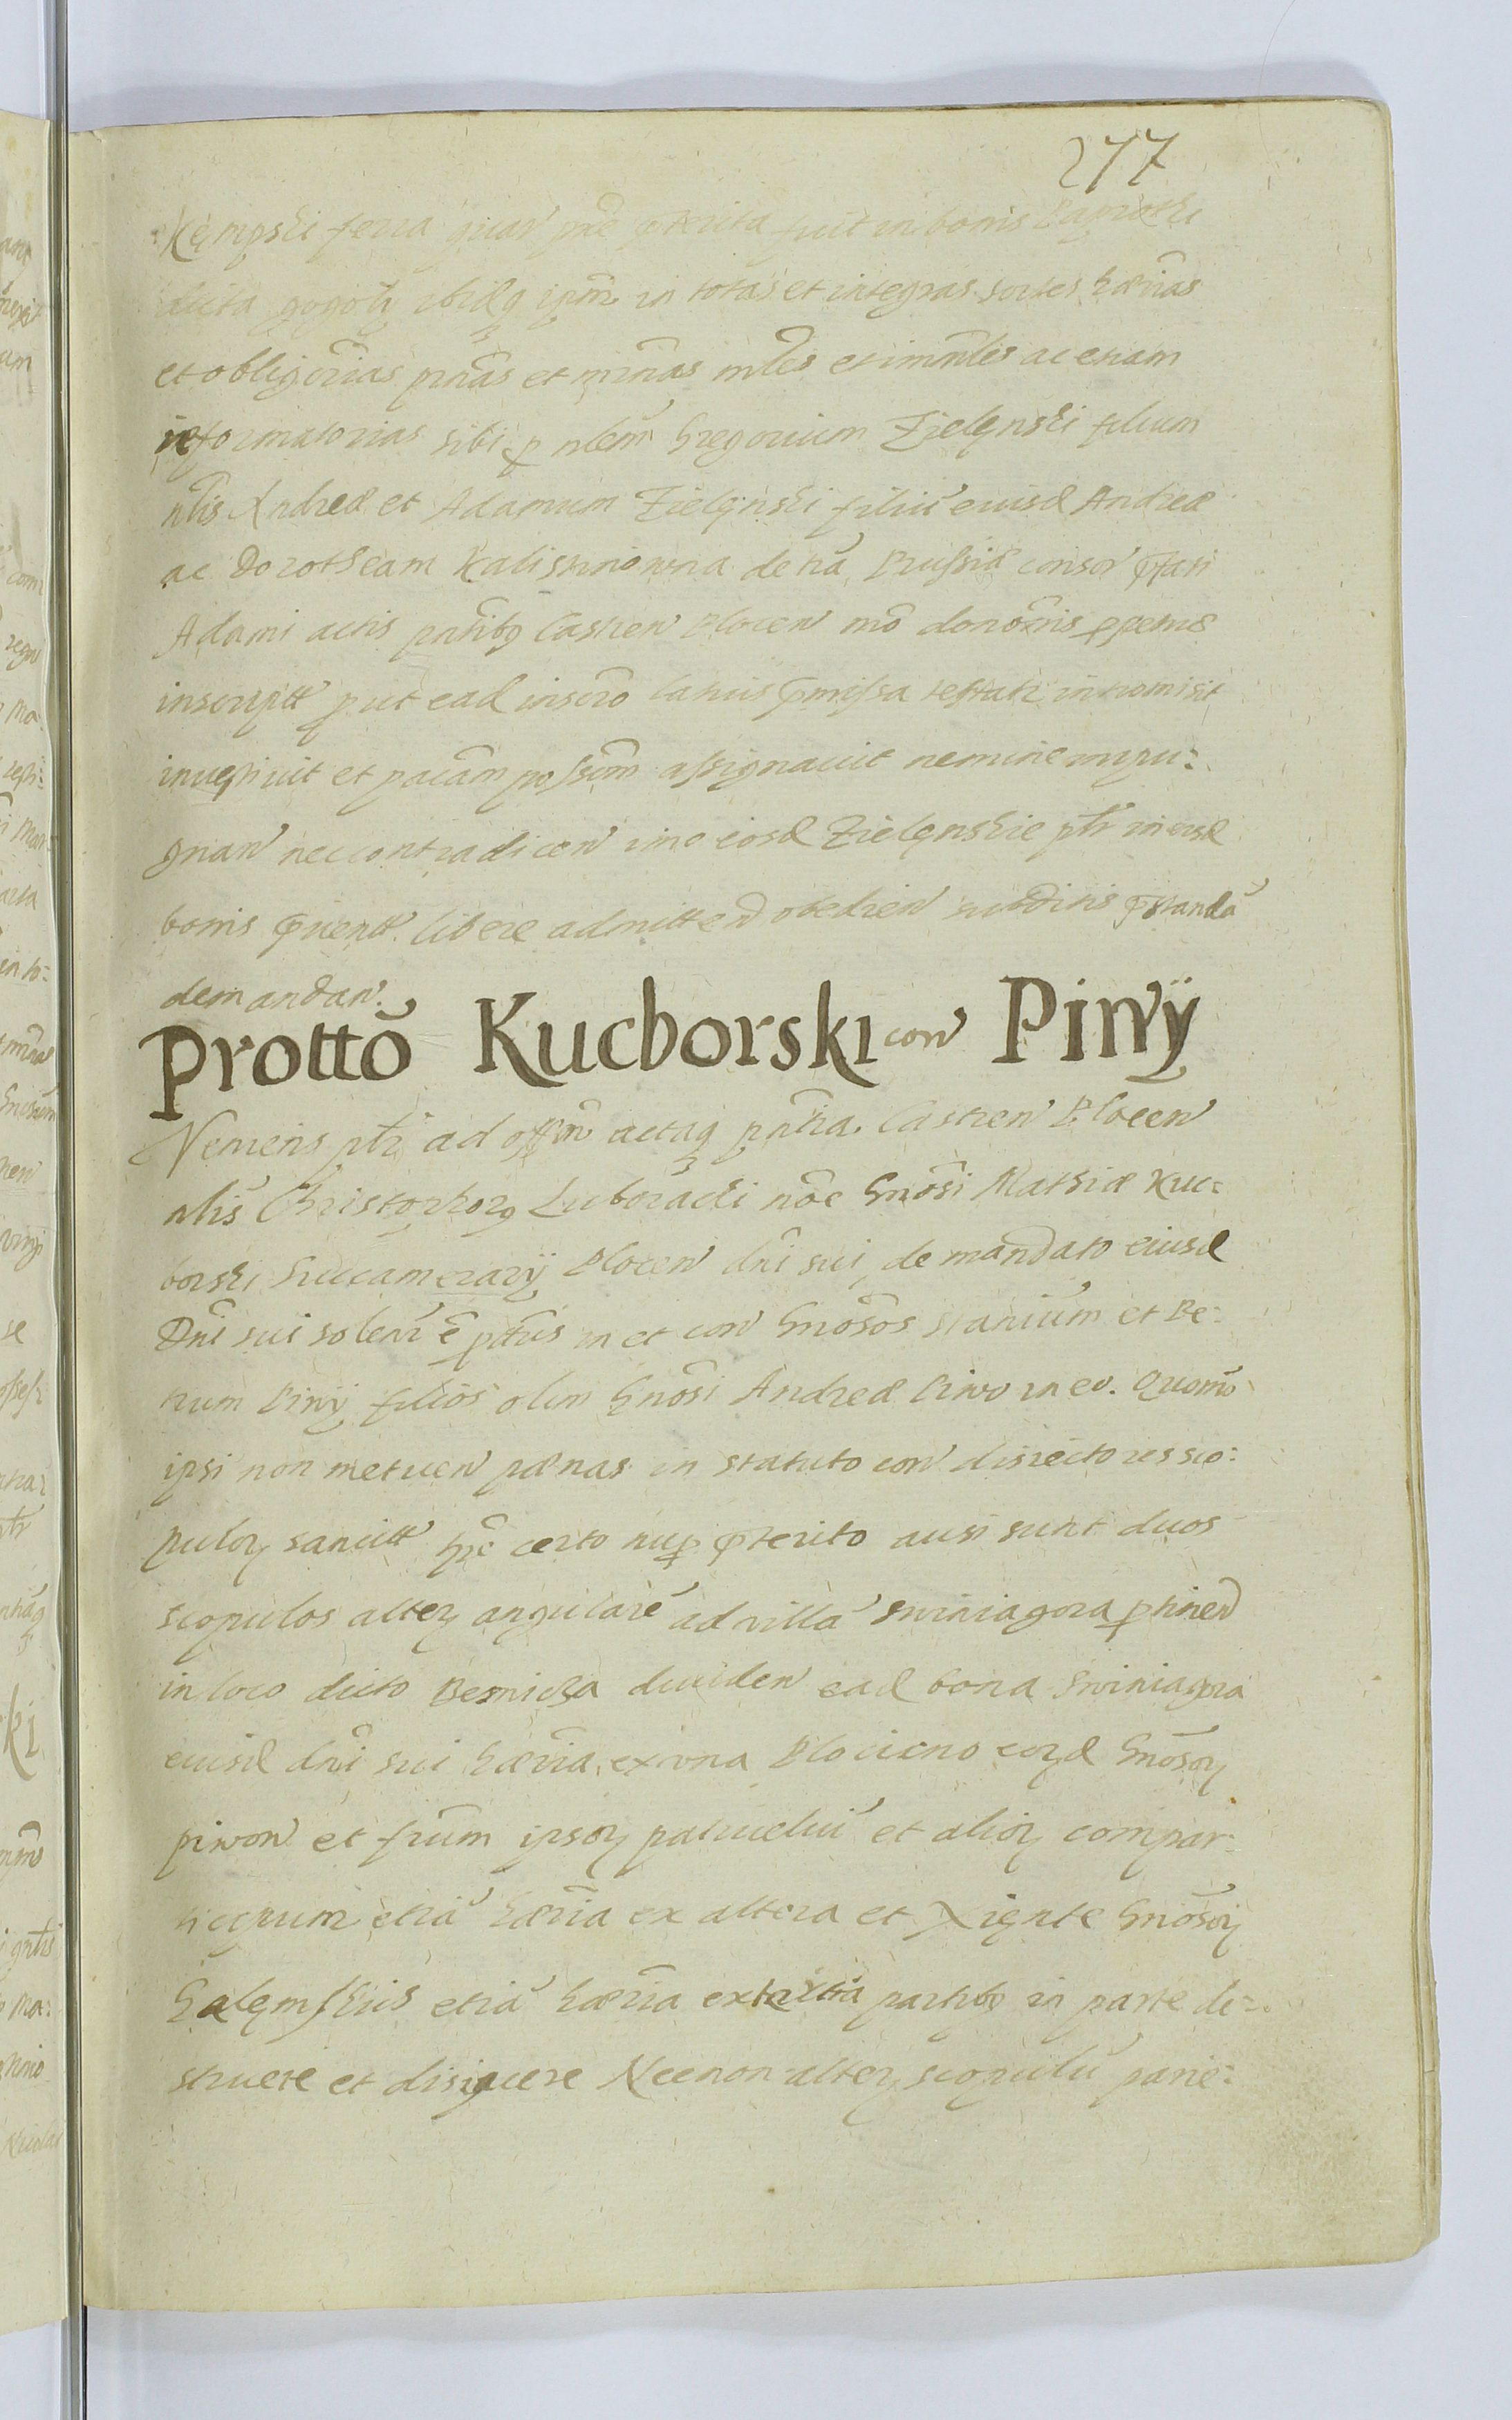 277
Kempski feria quar pñe pterita fuit in bonis Paprotki
dicta gogoły ibidq ipm̃ in totas et integras sortes hæriãs
et obligõrias pñas et minãs mĺes et immĺes ac etiam
reformatorias sibi p nlem Gregorium Zielęnski filium
nlis Andreæ et Adamum Zielęnski filiũ eiusd Andreæ
ac Dorotheam Kalisthnowna de trã Prussiæ consor pfati
Adami actis pñtibq Castren Plocen mõ donõnis ppetuæ
inscriptt put ead inscrõ latius pmissa testatr intromisit
inuestiuit et pacãm possõm assignauit nemine impu:
gnan nec contradicen imo eosd Zielęnskie ptr in eisd
bonis pnentt. libere admitten obedien subditis pstandã
demandan.
Prottõ Kucborski con Piny
Veniens ptr ad offm̃ actaq pñtia Castren Plocen
nlis Christophorq Luboradi nõe Gnõsi Mathiæ Kuc:
borski Succamerarÿ Plocen dñi sui, de mandato eiusd
Dñi sui solenr ẽ ptus in et con Gnõsos Stanium et Pe:
trum Piwÿ filios olim Gnõsi Andreæ Piwo in eo. Quomõ
ipsi non metuen pænas in statuto con disiectores sco:
pulor sancitt tpe certo nup pterito ausi sunt duos
scopulos alter angularẽ ad villã Swiniagora ptinen
in loco dicto Bernicza diuiden ead bona Swiniagora
eiusd dñi sui hæria ex vna Plocieno eord Gnõsor
piwon et frũm ipsor patrueliũ et alior compar:
ticipum etiã hæria ex altera et Xięnte Gnõsor
Galęmskiis etiã hæria ex tertia partibq in parte de:
struere et disiicere Necnon alter scopulũ parie: